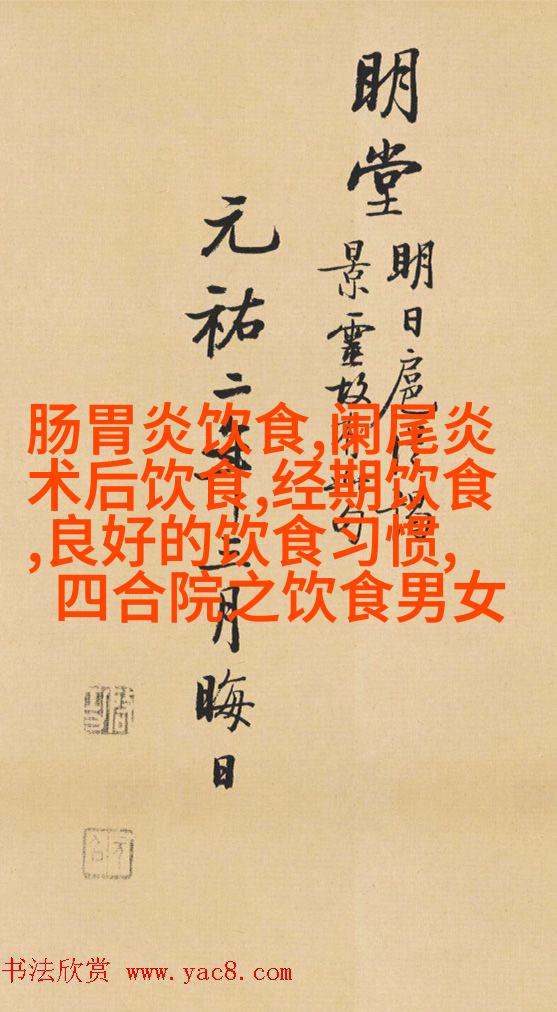 明堂
明日扈
景靈故
元祐二年十三月晦日
肠胃炎饮食,阑尾炎
术后饮食,经期饮食
,良好的饮食习惯,
四合院之饮食男女
书法欣赏 www.yac8.com